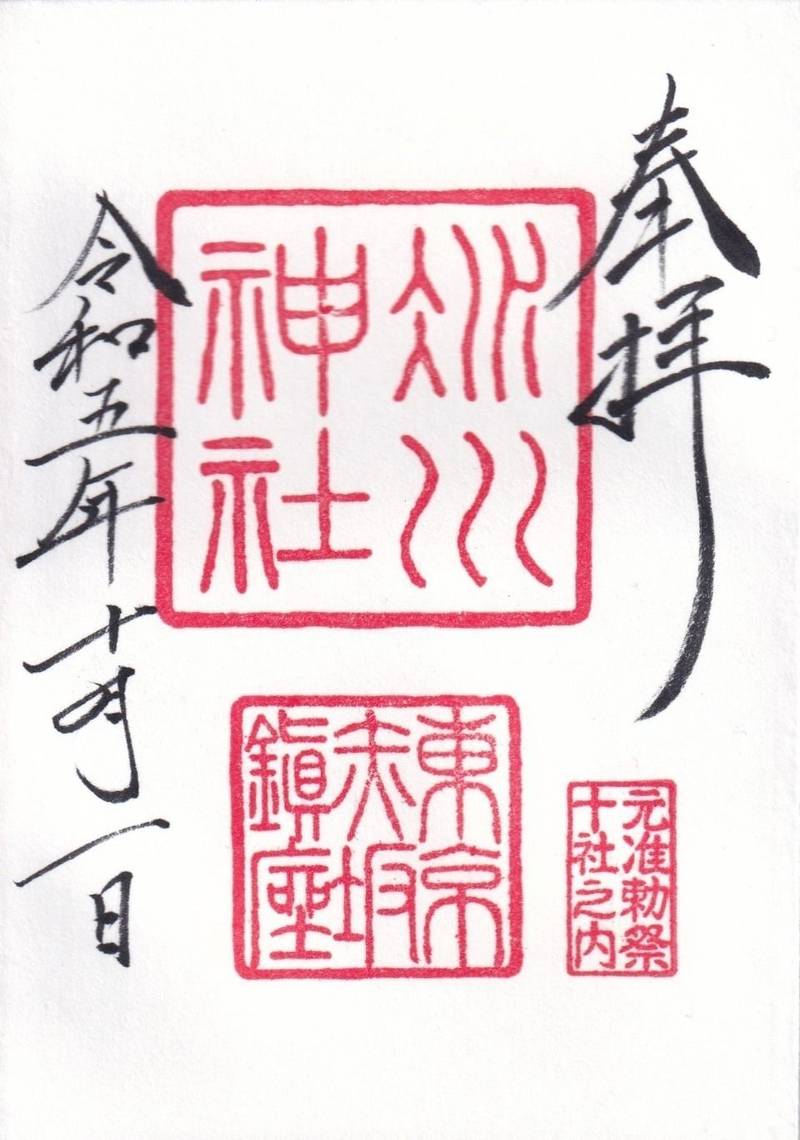 奉拝
氷川
神社
東京
赤坂
鎮座
元准勅祭
十社之内
令和五年十月一日